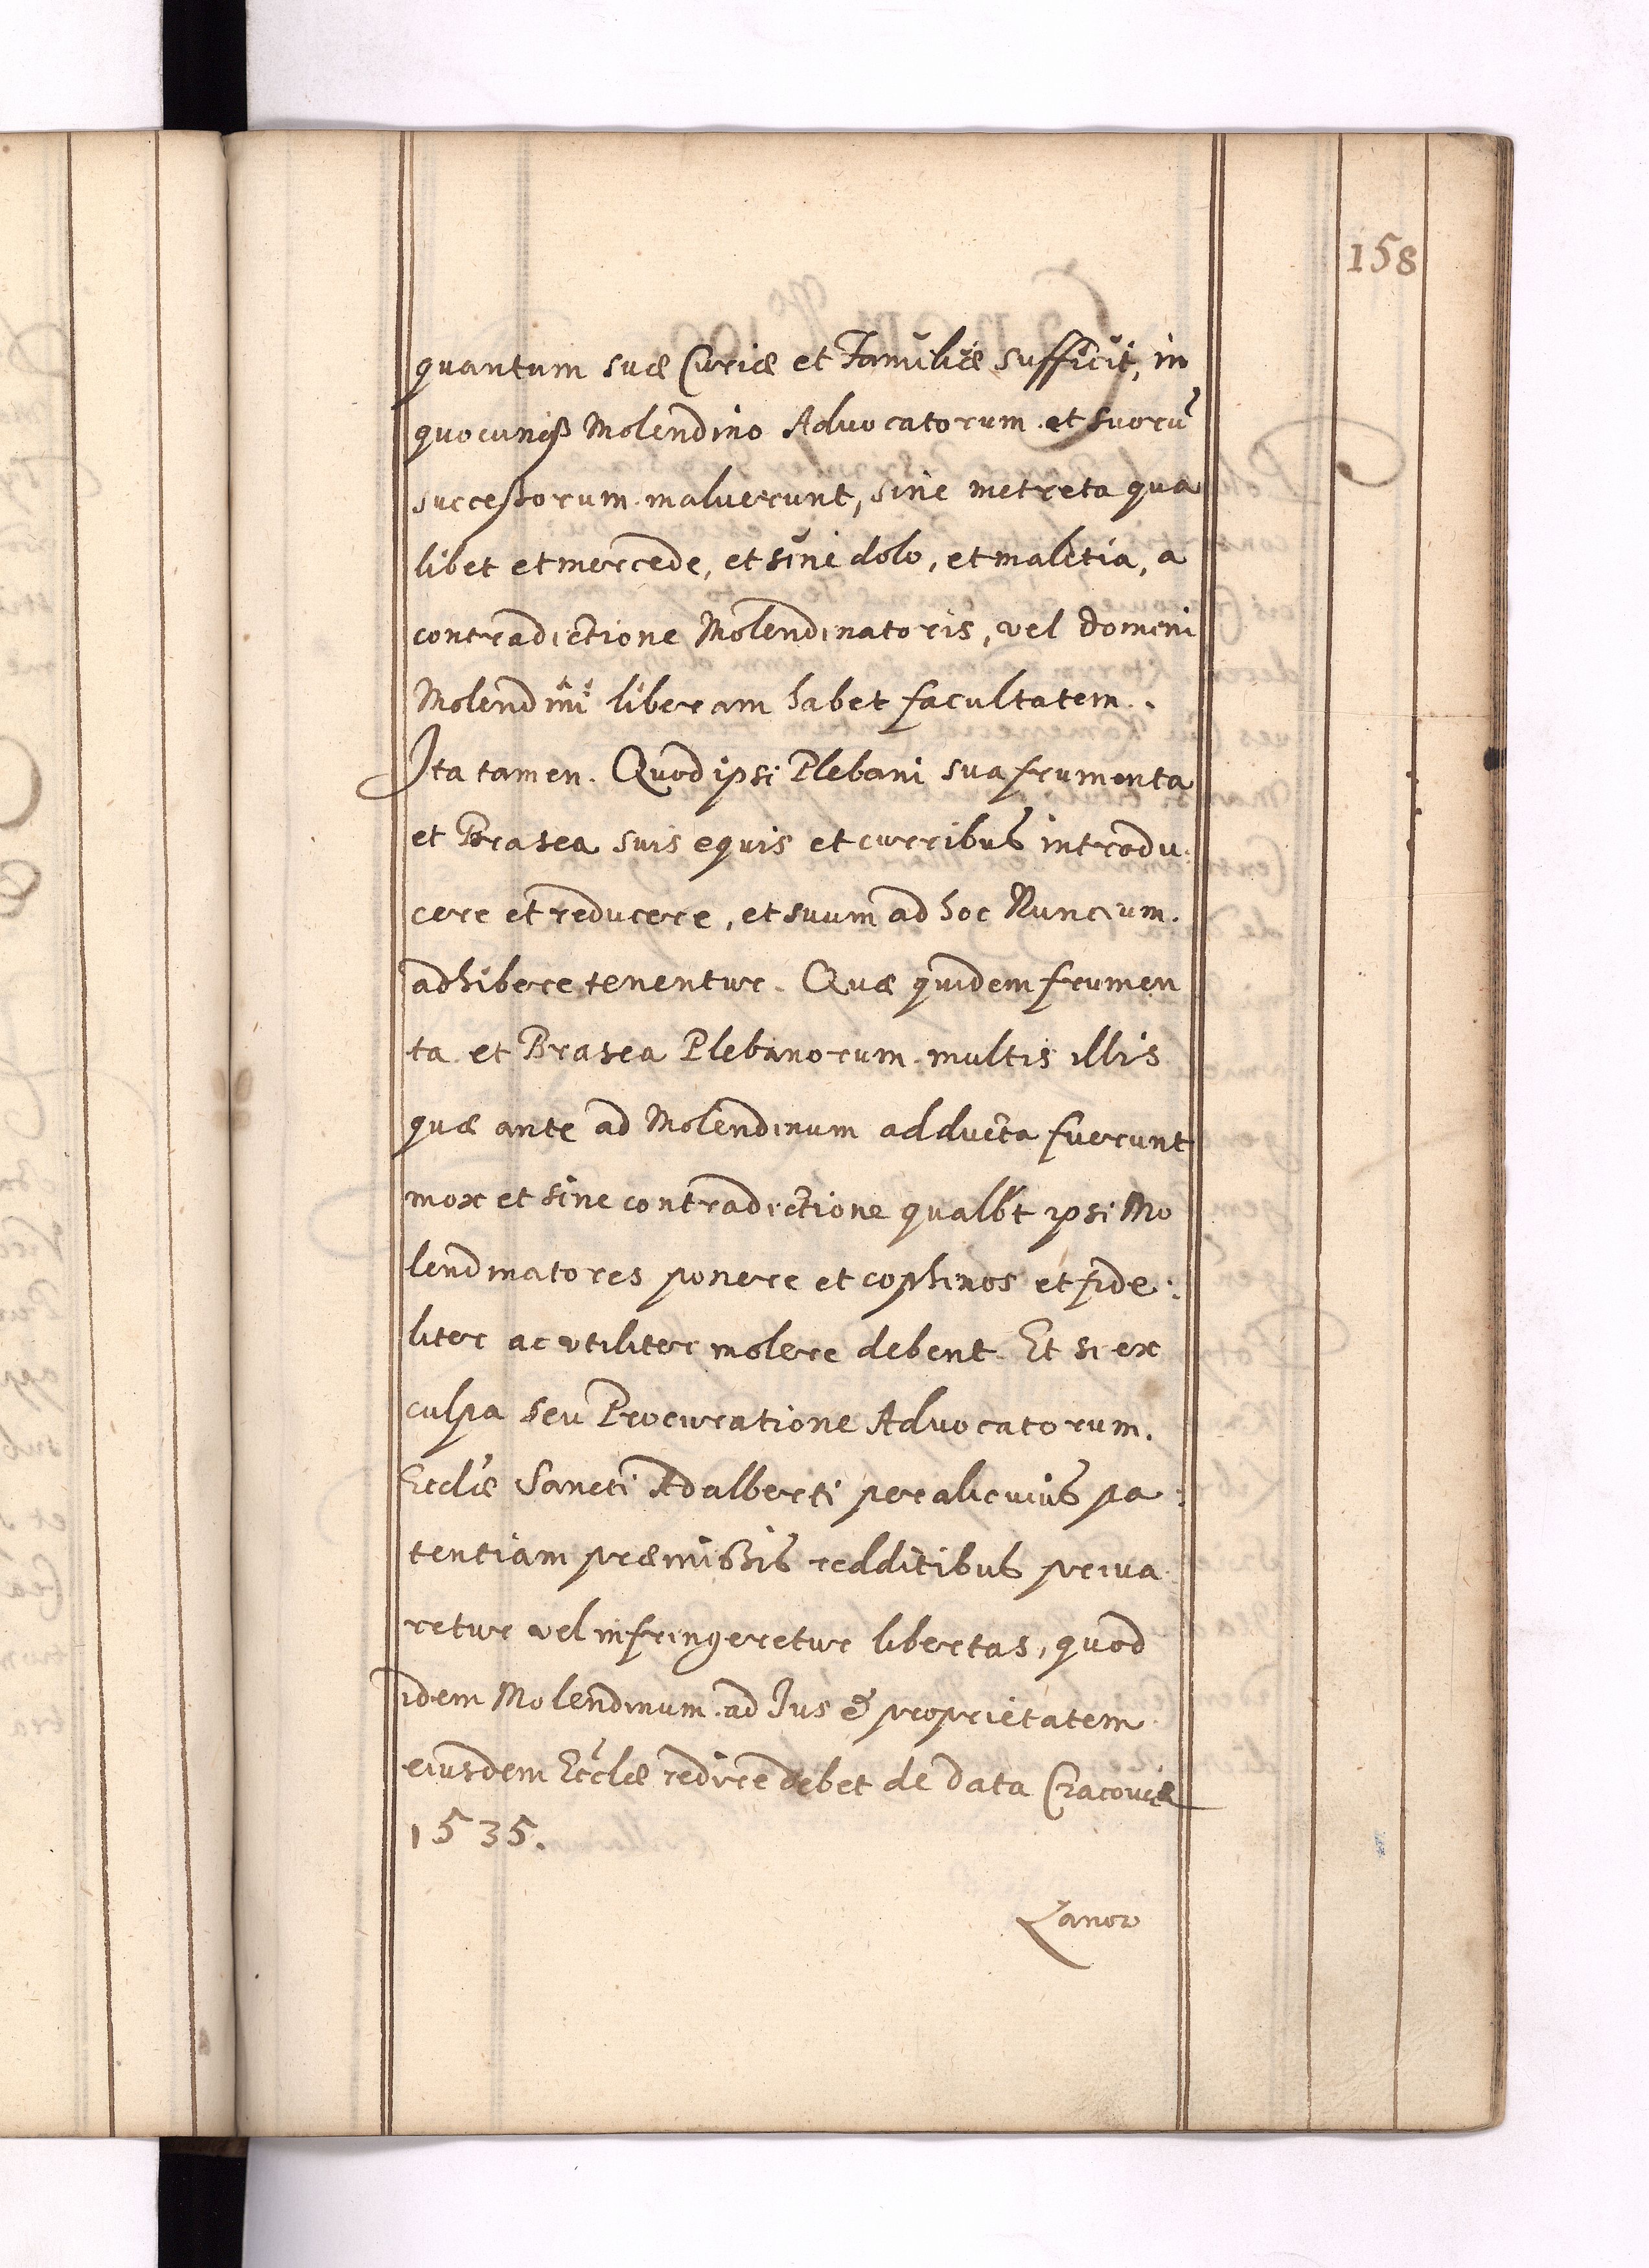 158
quantum suæ Curiæ et Familiæ sufficit, in
quocunqȝ Molendino Advocatorum et suorũ
successorum maluerunt, sine metreta qua
libet et mercede, et sine dolo, et malitia, a
contradictione Molendinatoris, vel domini
Molendini liberam habet facultatem.
Ita tamen. Quod ipsi Plebani sua frumenta
et Brasea suis equis et curribus introdu:
cere et reducere, et suum ad hoc Nuncium.
adhibere tenentur. Quæ quidem frumen
ta et Brasea Plebanorum multis illis
quæ ante ad Molendinum adducta fuerunt
mox et sine contradictione qualbt ipsi Mo
lendinatores ponere et cophinos et fide:
liter ac utiliter molere debent. Et si ex
culpa seu Procuratione Advocatorum.
Eccliæ Sancti Adalberti per alicuius pa:
tentiam præmissis redditibus priva
retur vel infringeretur libertas, quod
idem Molendinum ad Jus & proprietatem
eiusdem Eccliæ redire debet de data Cracoviæ
1535.
Łanow